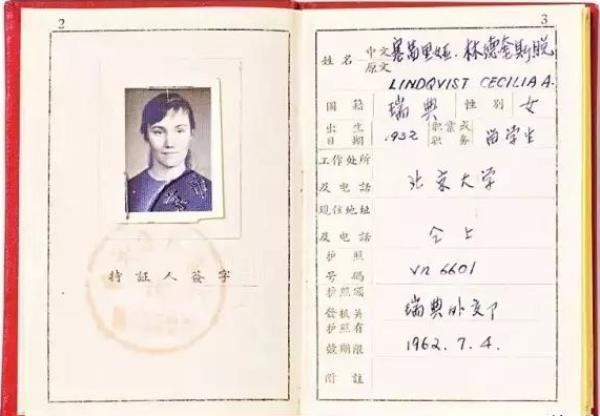 2
持証人簽字
3
姓名 中文 塞茜里娅·林德奎斯脱
原文 LINDQVIST CECILIA A.
国籍 瑞典 性别 女
出生 1932 职業或
日期 职务 留学生
工作处所
及电話 北京大学
現住地址
及电話 仝上
护照
号碼 VN 6601
护照頒
發机关 瑞典外交部
护照有
效期限 1962.7.4.
附註